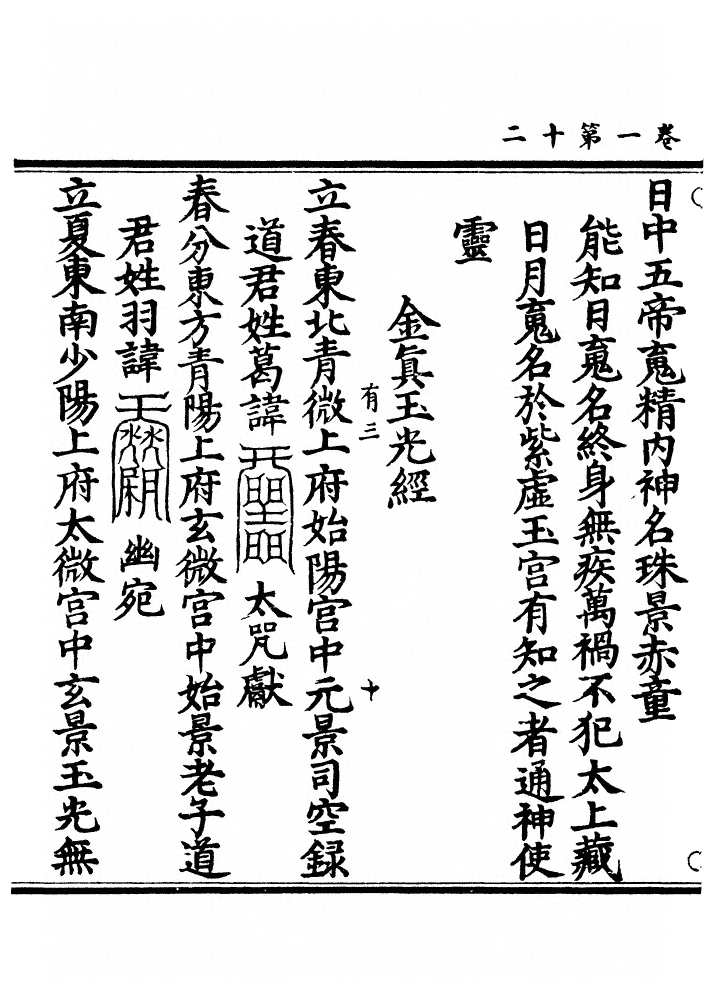 卷一第十二
日中五帝䰟精内神名珠景赤童
能知日䰟名終身無疾萬禍不犯太上藏
日月䰟名於紫虛玉宫有知之者通神使
靈
金眞玉光經
有三
十
立春東北青微上府始陽宫中元景司空録
道君姓葛諱 太咒獻
春分東方青陽上府玄微宫中始景老子道
君姓羽諱 幽宛
立夏東南少陽上府太微宫中玄景玉光無